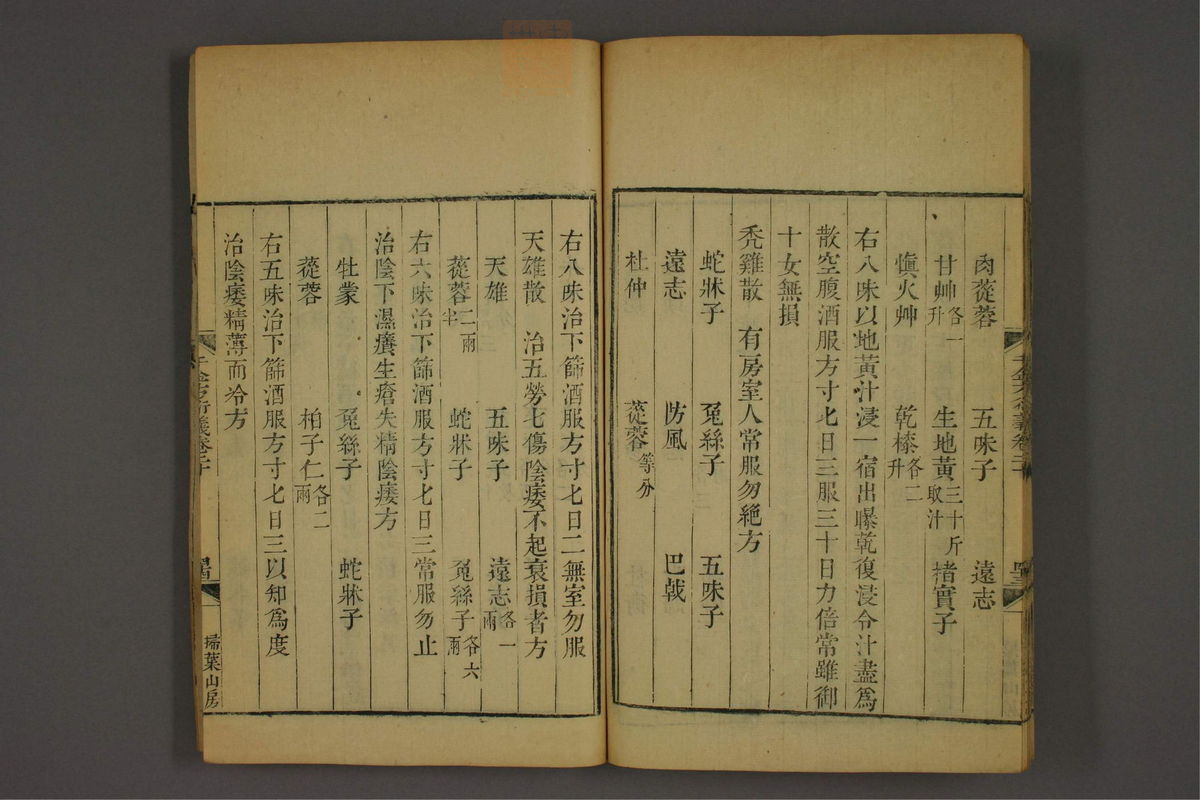 肉蓯蓉　五味子　遠志
甘艸各一升　生地黃三十斤取汁　楮實子
愼火艸　乾㯃各二升
右八味以地黃汁浸一宿出曝乾復浸令汁盡爲
散空腹酒服方寸匕日三服三十日力倍常雖御
十女無損
禿雞散　有房室人常服勿絶方
蛇牀子　兔絲子　五味子
遠志　防風　巴戟
杜仲　蓯蓉等分
右八味治下篩酒服方寸匕日二無室勿服
天雄散　治五勞七傷陰痿不起衰損者方
天雄　五味子　遠志各一兩
蓯蓉二兩半　蛇牀子　兔絲子各六兩
右六味治下篩酒服方寸匕日三常服勿止
治陰下濕癢生瘡失精陰痿方
牡蒙　兔絲子　蛇牀子
蓯蓉　柏子仁各二兩
右五味治下篩酒服方寸匕日三以知爲度
治陰痿精薄而冷方
千金方衍義卷二十
掃葉山房